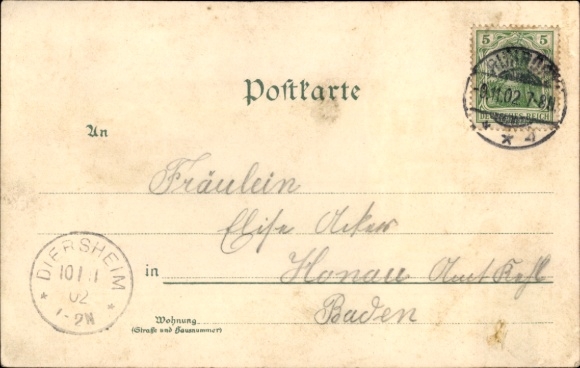 5 5
9.11.02. 7-8N.
DEUTSCHES REICH
Postkarte
An
Fräulein
Elise Acker
in Honau Amt Kehl
Baden
DIERSHEIM
02
1-2N
Wohnung
(Straße und Hausnummer)